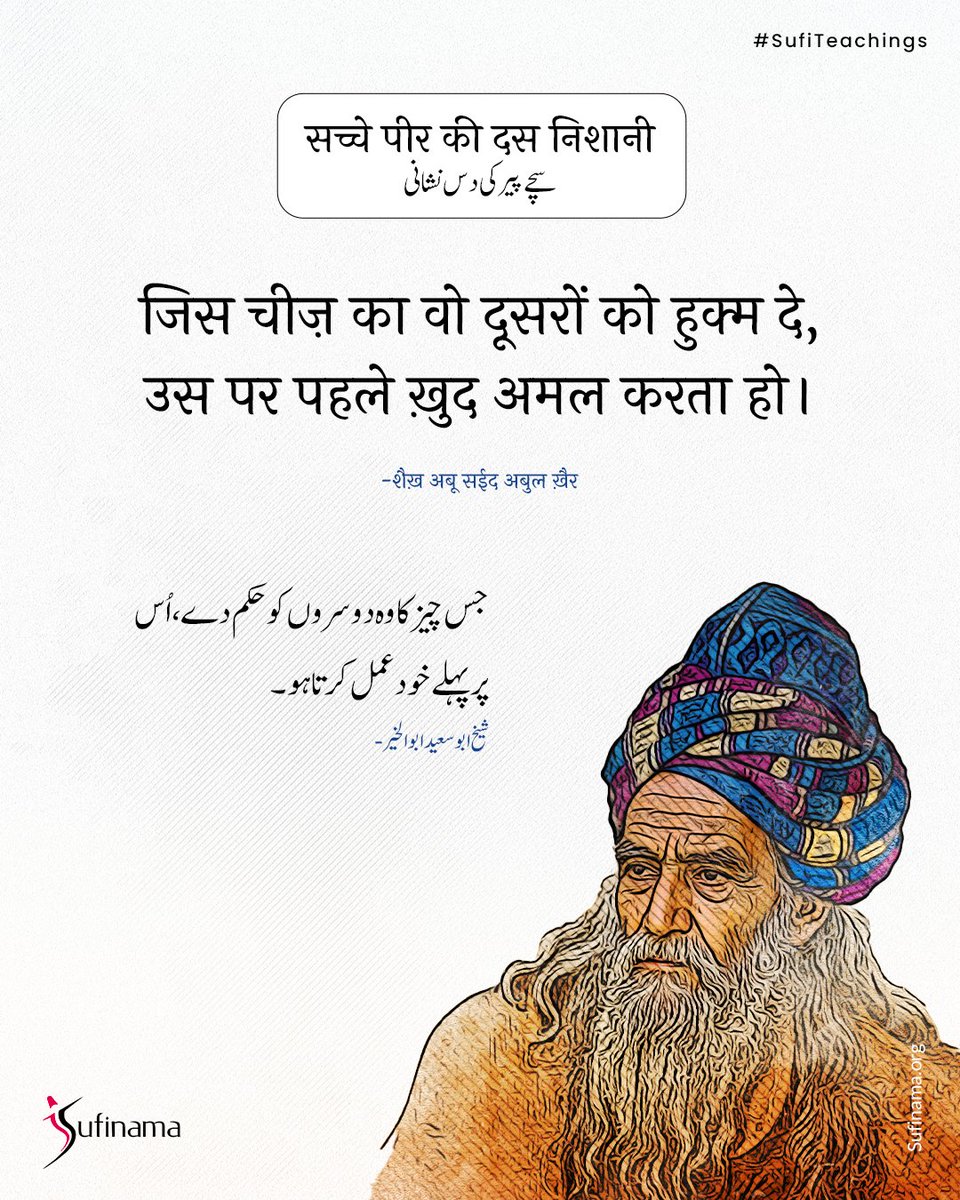 #SufiTeachings
सच्चे पीर की दस निशानी
سچے پیر کی دس نشانی
जिस चीज़ का वो दूसरों को हुक्म दे,
उस पर पहले ख़ुद अमल करता हो।
-शैख़ अबू सईद अबुल ख़ैर
جس چیز کا وہ دوسروں کو حکم دے، اُس
پر پہلے خود عمل کرتا ہو۔
شیخ ابو سعید ابوالخیر-
Sufinama
Sufinama.org